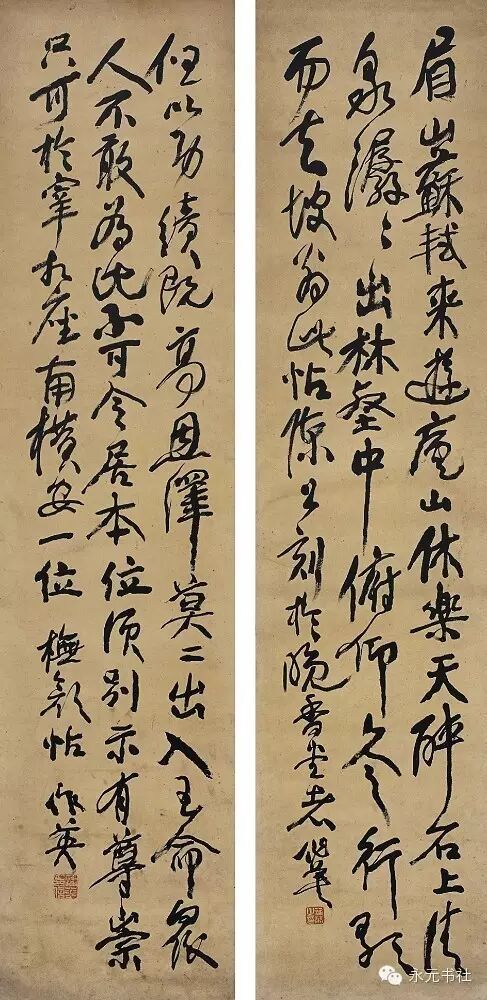 眉山蘇軾来遊廬山休樂天醉石上清
泉潺々出林壑中俯仰久之行歌
而去坡翁此帖陳公刻於晚香堂
但以功績既高恩澤莫二出入王命眾
人不敢為比不可令居本位須別示有尊崇
只可於宰相座南橫安一位 橅顏帖 作英
永元书社